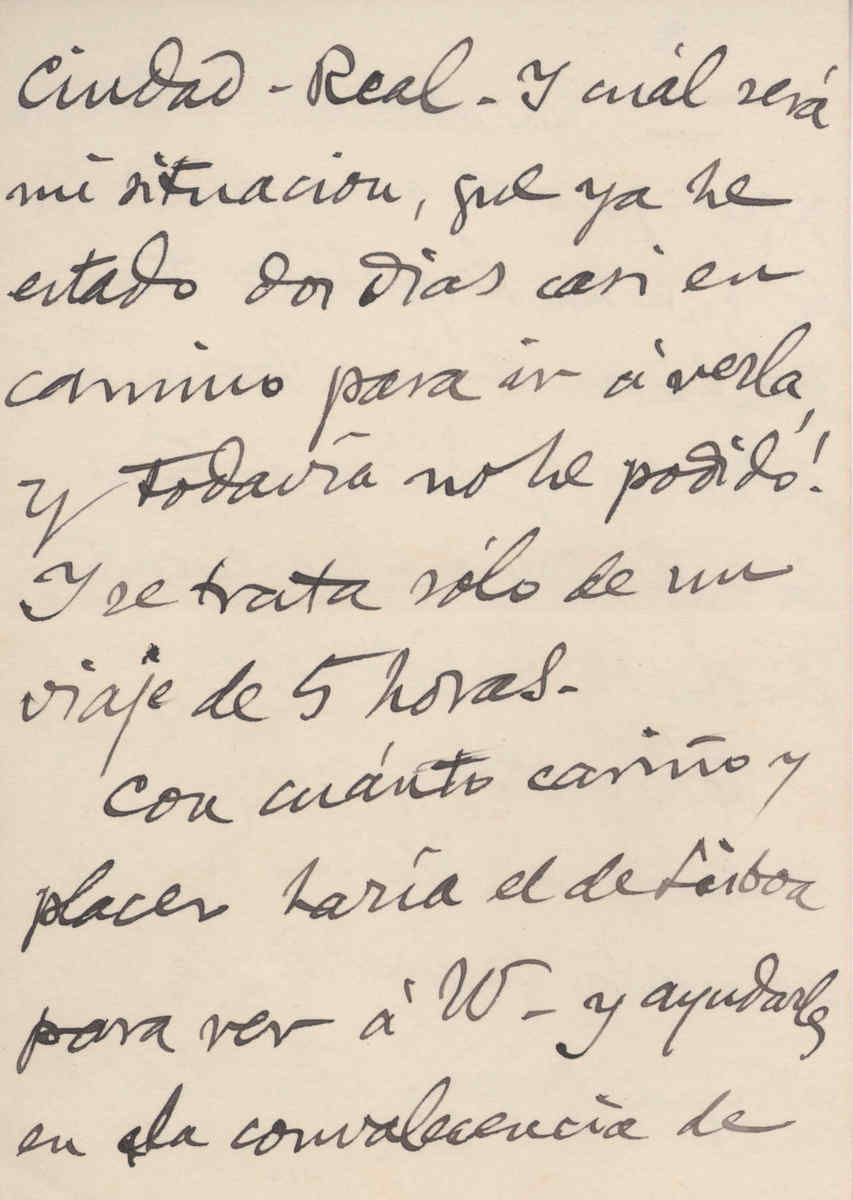 Ciudad-Real - Y cuál será
mi situacion, que ya he
estado dos dias casi en
camino para ir á verla,
y todavía no he podido!
Y se trata sólo de un
viaje de 5 horas -
Con cuánto cariño y
placer haría el de Lisboa
para ver á W - y ayudarles
en la convalecencia de